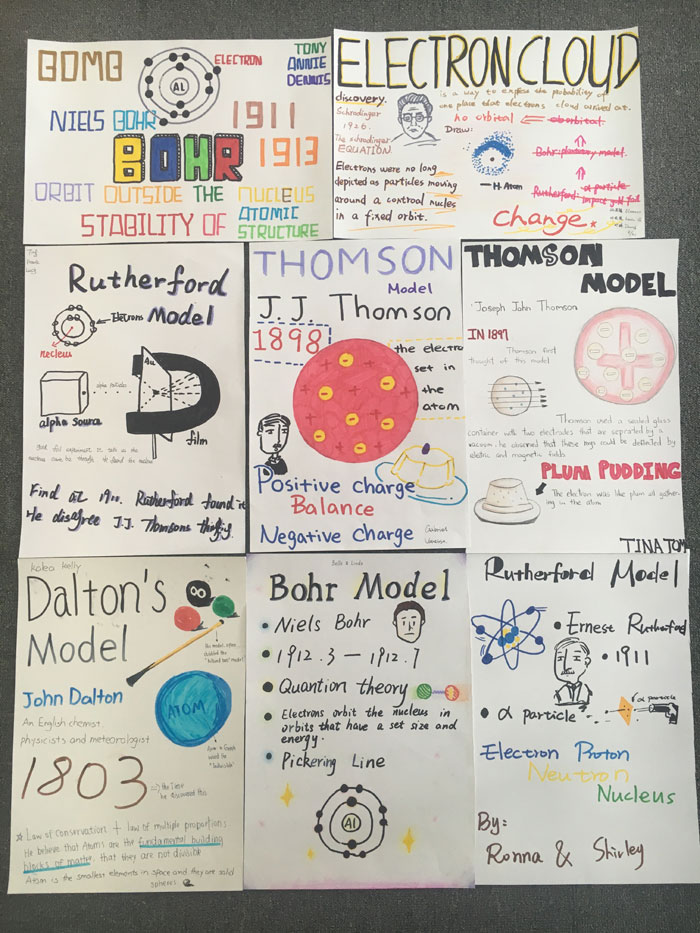 BOMB
ELECTRON
TONY
ANNIE
DENNIS
AL
NIELS BOHR
1911
BOHR
1913
ORBIT OUTSIDE THE NUCLEUS
STABILITY OF ATOMIC
STRUCTURE
ELECTRON CLOUD
is a way to express the probability of
one place that electrons cloud arrived at.
discovery.
Schrodinger
1926.
The schrodinger
EQUATION.
no orbital
orbital
Draw:
Bohr planary model.
H. Atom
Rutherford α-particle
impact gold foil
Electrons were no long
depicted as particles moving
around a control nucles
in a fixed orbit.
Change.
Rutherford
Model
Electrons
necleus
alpha particles
Au
alpha source
film
Find at 1911. Rutherford found it
He disagree J.J. Thomsons
THOMSON
Model
J.J. Thomson
1898
the electro
set in
the
atom
Positive charge
Balance
Negative charge
Gabriel
Vanessa
THOMSON
MODEL
Joseph John Thomson
IN 1897
Thomson first
thought of this model
Thomson used a sealed glass
container with two electrodes that are separated by a
vacuum. he observed that these rays could be deflected by
electric and magnetic fields.
PLUM PUDDING
The electron was like plum at gather-
ing in the atom
TINA TOM
kokea kelly
Dalton's
Model
8
His model often
called the
"billiard ball" model
John Dalton
An English chemist.
physicists and meteorologist
ATOM
Atom in Greek
means the
"indivisible"
1803
the time
he discovered this
Law of conservation + law of multiple proportions
He believes that Atoms are the fundamental building
blocks of matter, that they are not divisible
Atom is the smallest elements in space and they are solid
spheres
Bella & Linda
Bohr Model
Niels Bohr
1912.3 — 1912.7
Quantion theory
Electrons orbit the nucleus in
orbits that have a set size and
energy.
Pickering Line
Al
Rutherford Model
Ernest Rutherford
1911
α particle
α paracle
Electron Proton
Neutron
Nucleus
By:
Ronna & Shirley